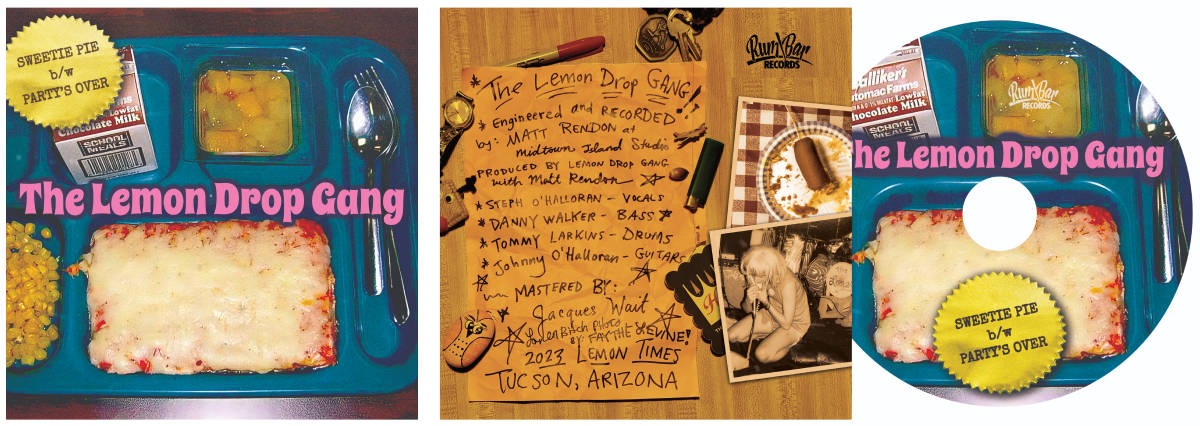 SWEETIE PIE
b/w
PARTY'S OVER
Lowfat
Chocolate Milk
SCHOOL
MEALS
The Lemon Drop Gang
Rum Bar
RECORDS
The Lemon Drop GANG!
Engineered and RECORDED
by: MATT RENDON at
Midtown Island Studio
PRODUCED BY LEMON DROP GANG
with Matt Rendon
STEPH O'HALLORAN - VOCALS
DANNY WALKER - BASS
TOMMY LARKINS - DRUMS
Johnny O'Halloran - GUITARS
MASTERED BY:
Jacques Wait
Photo
BY: FAYTHE LEVINE!
2023 LEMON TIMES
TUCSON, ARIZONA
alliker's
tomac Farms
Lowfat
hocolate Milk
SCHOOL
MEALS
Rum Bar
RECORDS
he Lemon Drop Gang
SWEETIE PIE
b/w
PARTY'S OVER